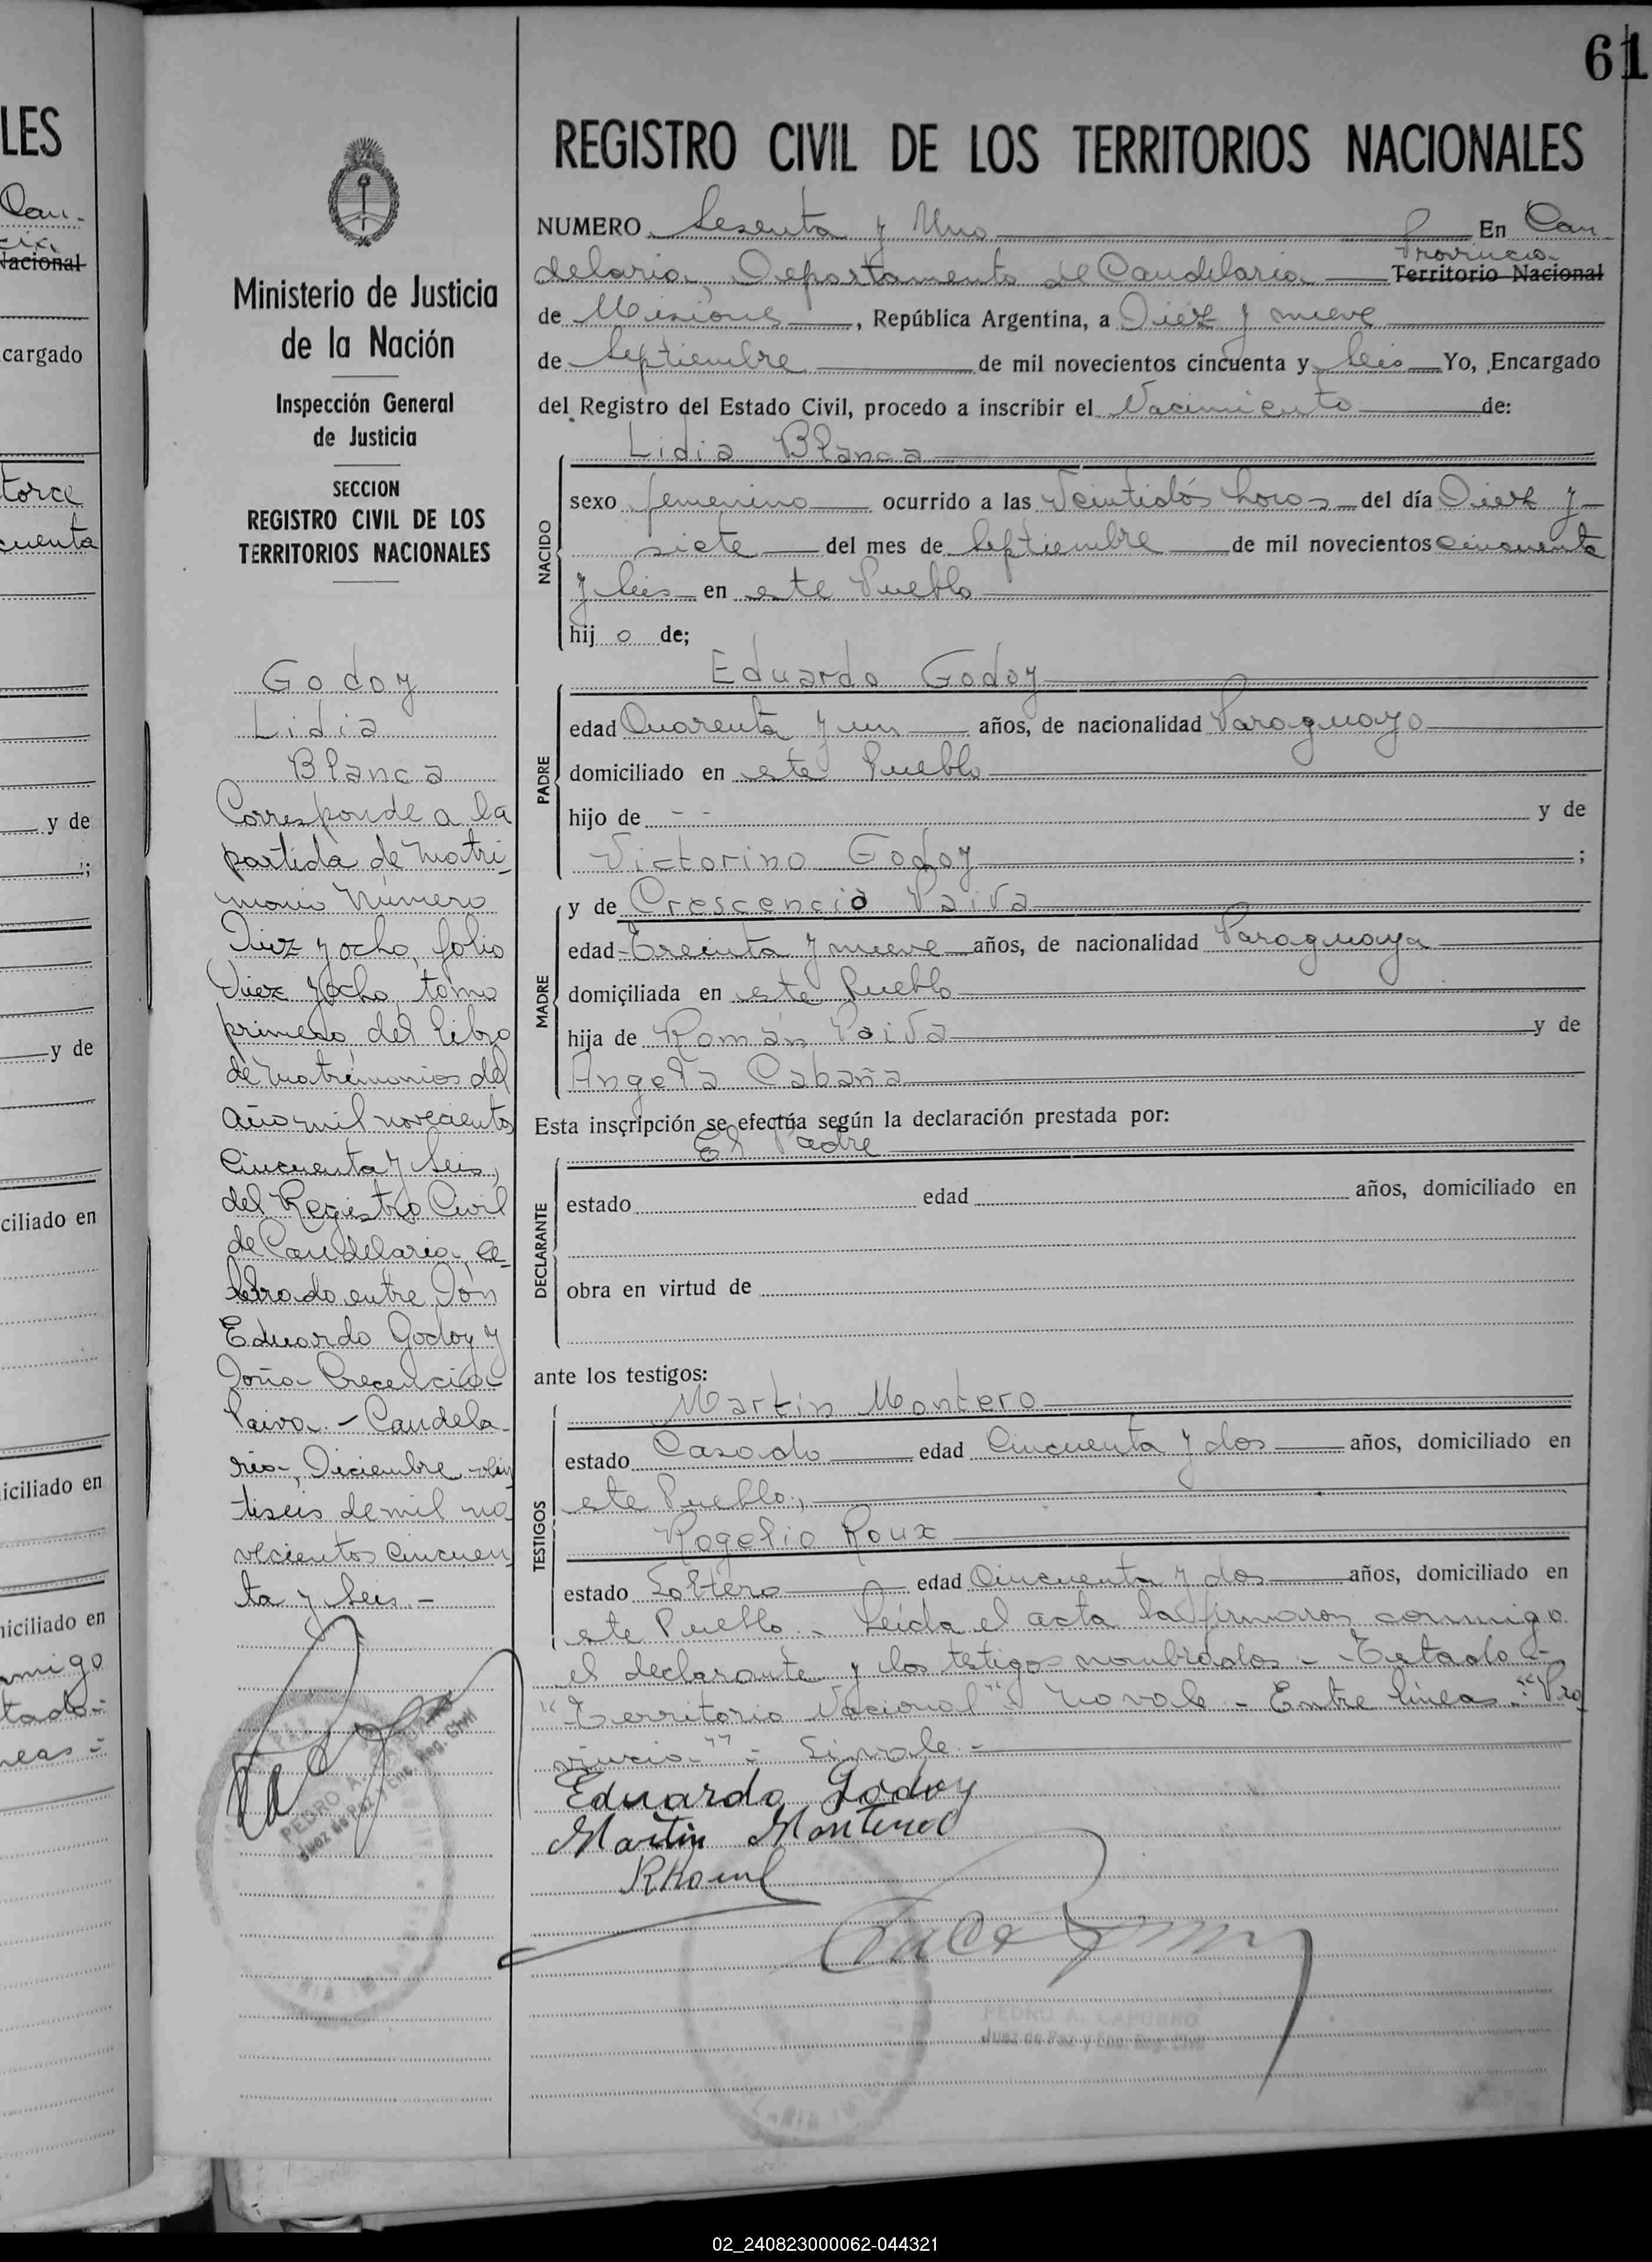 61
REGISTRO CIVIL DE LOS TERRITORIOS NACIONALES
NUMERO Sesenta y Uno En Can-
delaria, Departamento de Candelaria Provincia Territorio Nacional
de Misiones, República Argentina, a Diez y nueve
de Septiembre de mil novecientos cincuenta y Seis Yo, Encargado
del Registro del Estado Civil, procedo a inscribir el Nacimiento de:
NACIDO
Lidia Blanca
sexo femenino ocurrido a las Veintidós horas del día Diez y
siete del mes de Septiembre de mil novecientos cincuenta
y Seis en este Pueblo
hij o de;
PADRE
Eduardo Godoy
edad Cuarenta y un años, de nacionalidad Paraguayo
domiciliado en este Pueblo
hijo de - - y de
Victorino Godoy;
MADRE
y de Crescencia Paiva
edad Treinta y nueve años, de nacionalidad Paraguaya
domiciliada en este Pueblo
hija de Román Paiva y de
Angela Cabaña
Esta inscripción se efectúa según la declaración prestada por:
DECLARANTE
El Padre
estado edad años, domiciliado en
obra en virtud de
ante los testigos:
TESTIGOS
Martin Montero
estado Casado edad Cincuenta y dos años, domiciliado en
este Pueblo,
Rogelio Roux
estado Soltero edad Cincuenta y dos años, domiciliado en
este Pueblo. - Leída el acta la firmaron conmigo
el declarante y los testigos nombrados - Testado -
"Territorio Nacional" - No vale - Entre líneas - "Pro
vincia" - Sí vale -
Eduardo Godoy
Martin Montero
PEDRO A. CAPURRO
Juez de Paz y Enc. Reg. Civil
Ministerio de Justicia
de la Nación
Inspección General
de Justicia
SECCION
REGISTRO CIVIL DE LOS
TERRITORIOS NACIONALES
Godoy
Lidia
Blanca
Corresponde a la
partida de Matri-
monio Número
Diez y ocho, folio
Diez y ocho, tomo
primero del Libro
de Matrimonios del
Año mil novecientos
Cincuenta y Seis,
del Registro Civil
de Candelaria, ce-
lebrado entre Don
Eduardo Godoy y
Doña Crecencia
Paiva. - Candela-
ria, Diciembre vein
tiseis de mil no
vecientos cincuen
ta y Seis. -
PEDRO A.
Juez de Paz y Enc. Reg. Civil
LES
Can-
Nacional
cargado
torce
cuenta
y de
y de
ciliado en
iciliado en
niciliado en
nmigo
tado-
neas -
02_240823000062-044321